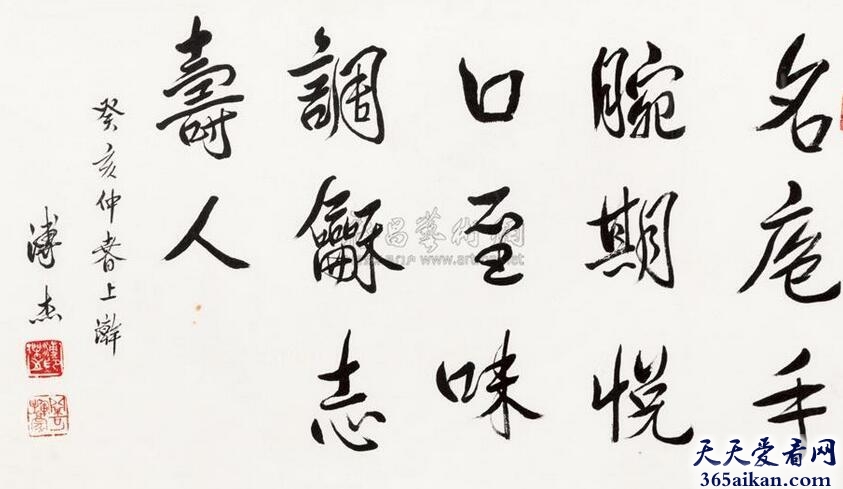 名庖手
腕期悦
口至味
調龢志
壽人
癸亥仲春上澣
溥杰
昌藝術網
www.art
.net
天天爱看网
365aikan.com